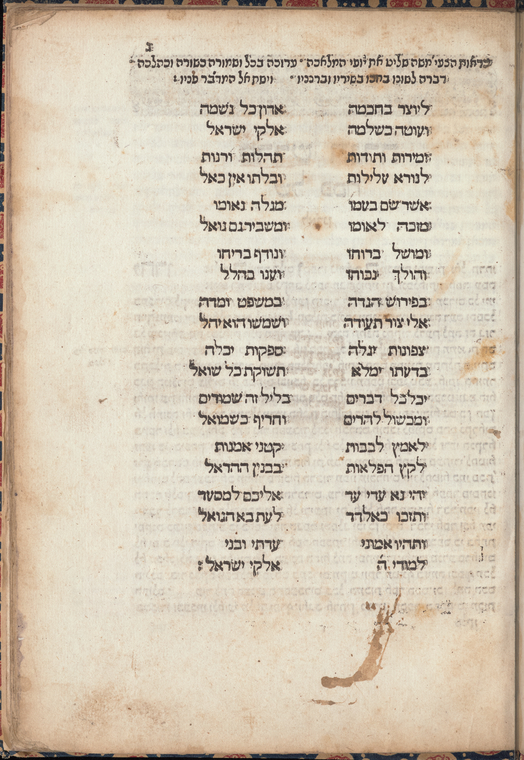 ב
כראות הצעי' משה את יופי המלאכה׃ ערוכה בכל ושמורה כשורה וכהלכה׃
דברה לשונו בחכו בשיריו ויפת אל המדבר פניו׃
ליוצר בחכמה אדון כל נשמה׃
ועוטה כשלמה אלקי ישראל׃
זמירות ותודות תהלות ורנות׃
לנורא עלילות ובלתו אין כאל׃
אשר שם בעמו מגלה נאומו׃
מזכה לאומו ומשביר גם גואל׃
ומושל ברוחו ונודף בריחו׃
והולך נכוחו וענו כהלל׃
בפירוש הגדה במשפט ומדה׃
אלי צור תעודה ושמשו הוא יהל׃
צפונות יגלה ספקות יכלה׃
בדעתו ימלא תשוקת כל שואל׃
יכלכל דברים בליל זה שמורים׃
ומכשול להרים וחריף כשמואל׃
לאמץ לבבות קטני אמנות׃
לקץ הפלאות בבנין ההראל׃
יהי נא עדי עד אליכם למסעד׃
ותזכו כאלדד לעת בא הגואל׃
ותהיו אמתי עדתי ובני׃
למודי ה' אלקי ישראל׃